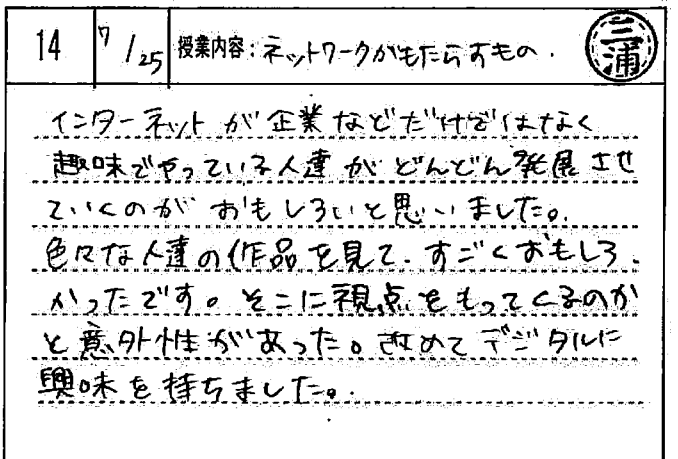 14 7/25 授業内容：ネットワークがもたらすもの． 三浦
インターネットが企業などだけではなく
趣味でやっている人達がどんどん発展させ
ていくのがおもしろいと思いました。
色々な人達の作品を見て．すごくおもしろ．
かったです。そこに視点をもってくるのか
と意外性があった。改めてデジタルに
興味を持ちました。